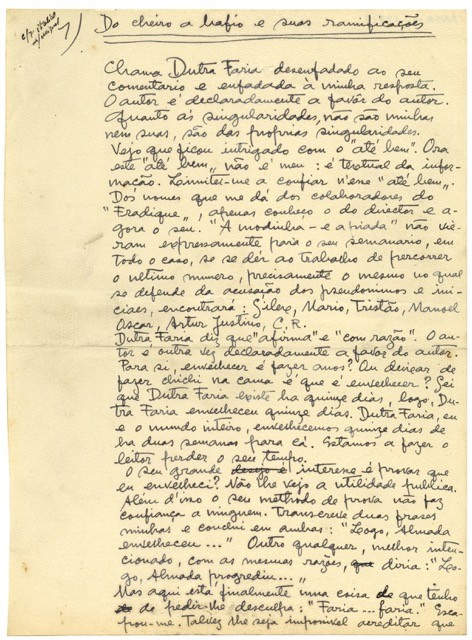 Do cheiro a bafio e suas ramificações
Chama Dutra Faria desenfadado ao seu
comentario e enfadada á minha resposta.
O autor é declaradamente a favor do autor.
Quanto ás singularidades, não são minhas
nem suas, são das proprias singularidades.
Vejo que ficou intrigado com o "até bem". Ora
este "até bem", não é meu: é textual da infor-
mação. Limitei-me a confiar n'esse "até bem".
Dos nomes que me dá dos colaboradores do
"Fradique", apenas conheço o do director e a-
gora o seu. "A modinha - e a piada" não vie-
ram expressamente para o seu semanario, em
todo o caso, se se dér ao trabalho de percorrer
o ultimo numero, precisamente o mesmo no qual
se defende da acusação dos pseudonimos e ini-
ciaes, encontrará: Gilex, Mario, Tristão, Manoel
Oscar, Artur Justino, C. R.
Dutra Faria diz que "afirma" e "com razão". O au-
tor é outra vez declaradamente a favor do autor.
Para si, envelhecer é fazer anos? Ou deixar de
fazer chichi na cama é que é envelhecer? Sei
que Dutra Faria existe ha quinze dias, logo, Du-
tra Faria envelheceu quinze dias. Dutra Faria, eu
e o mundo inteiro, envelhecemos quinze dias de
ha duas semanas para cá. Estamos a fazer o
leitor perder o seu tempo.
O seu grande desejo é interesse é provar que
eu envelheci? Não lhe vejo a utilidade publica.
Além d'isso o seu methodo de prova não faz
confiança a ninguem. Transcreve duas frases
minhas e conclui em ambas: "Logo, Almada
envelheceu..." Outro qualquer, melhor inten-
cionado, com as mesmas razões, que diria: "Lo-
go, Almada progrediu..."
Mas aqui está finalmente uma coisa de que tenho
de pedir-lhe desculpa: "Faria... faria." Esca-
pou-me. Talvez lhe seja impossivel acreditar que